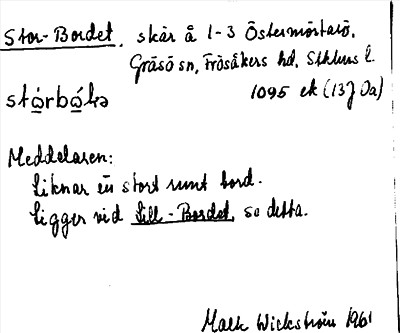 Stor-Bordet, skär å 1-3 Östermörtarö,
Gräsö sn, Frösåkers hd, Sthlms l.
stǫ́rbǫ́ḷə 1095 ek (13J 0a)
Meddelaren:
Liknar en stort runt bord.
Ligger vid Lill-Bordet, se detta.
Mats Wickström 1961